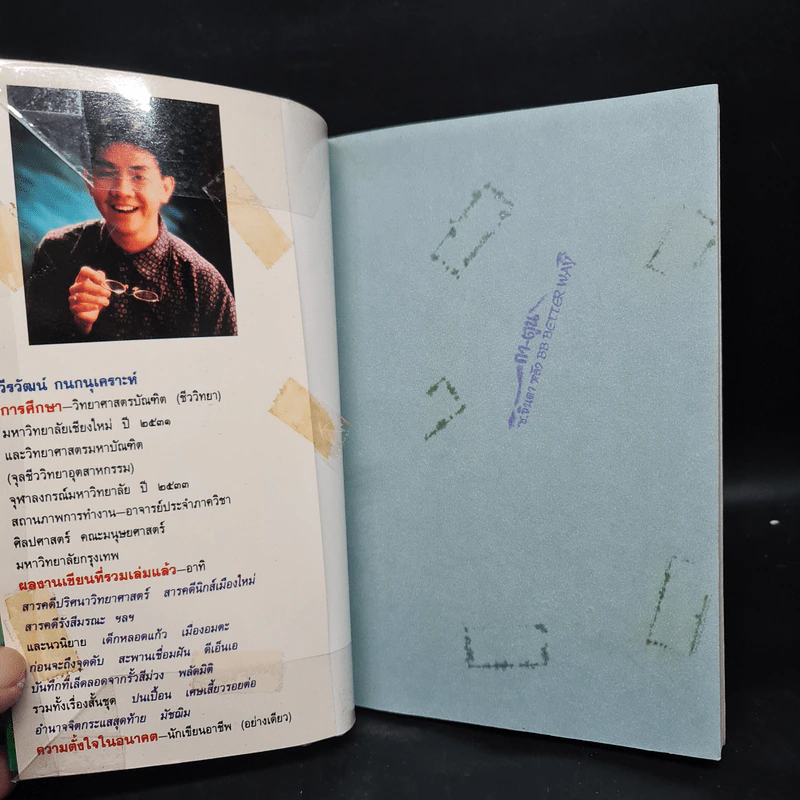 วีรวัฒน์ กนกนุเคราะห์
การศึกษา—วิทยาศาสตรบัณฑิต (ชีววิทยา)
มหาวิทยาลัยเชียงใหม่ ปี ๒๕๓๑
และวิทยาศาสตรมหาบัณฑิต
(จุลชีววิทยาอุตสาหกรรม)
จุฬาลงกรณ์มหาวิทยาลัย ปี ๒๕๓๓
สถานภาพการทำงาน—อาจารย์ประจำภาควิชา
ศิลปศาสตร์ คณะมนุษยศาสตร์
มหาวิทยาลัยกรุงเทพ
ผลงานเขียนที่รวมเล่มแล้ว—อาทิ
สารคดีปริศนาวิทยาศาสตร์ สารคดีนิกส์เมืองใหม่
สารคดีรังสีมรณะ ฯลฯ
และนวนิยาย เด็กหลอดแก้ว เมืองอมตะ
ก่อนจะถึงจุดดับ สะพานเชื่อมฝัน ดีเอ็นเอ
บันทึกที่เล็ดลอดจากรั้วสีม่วง พลัดมิติ
รวมทั้งเรื่องสั้นชุด ปนเปื้อน เศษเสี้ยวรอยต่อ
อำนาจจิตกระแสสุดท้าย มัชฌิม
ความตั้งใจในอนาคต—นักเขียนอาชีพ (อย่างเดียว)
กา-ตูน
ช.จินดา หลัง BB BETTER WAY